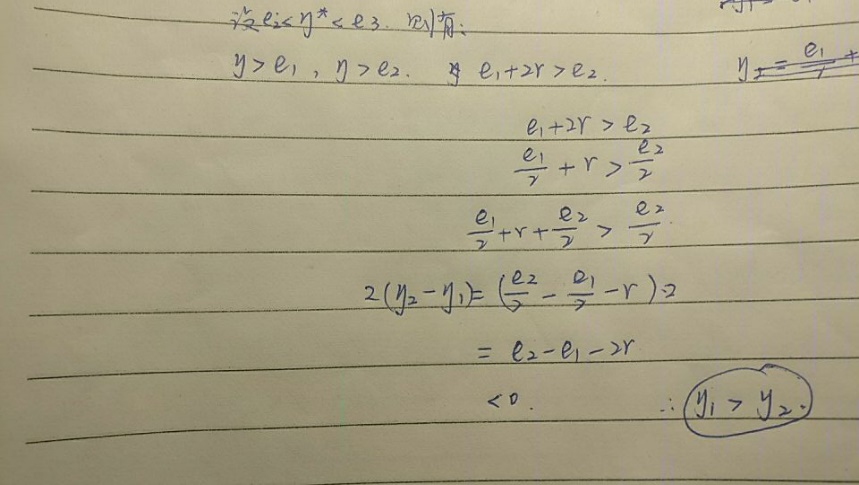 设 e₂ < y* < e₃. 则有:
y > e₁, y > e₂. e₁ + 2r > e₂.
y₂ = e₁/2 +
e₁ + 2r > e₂
e₁/2 + r > e₂/2
e₁/2 + r + e₂/2 > e₂/2
2(y₂ - y₁) = (e₂/2 - e₁/2 - r)·2
= e₂ - e₁ - 2r
< 0. ∴ y₁ > y₂.